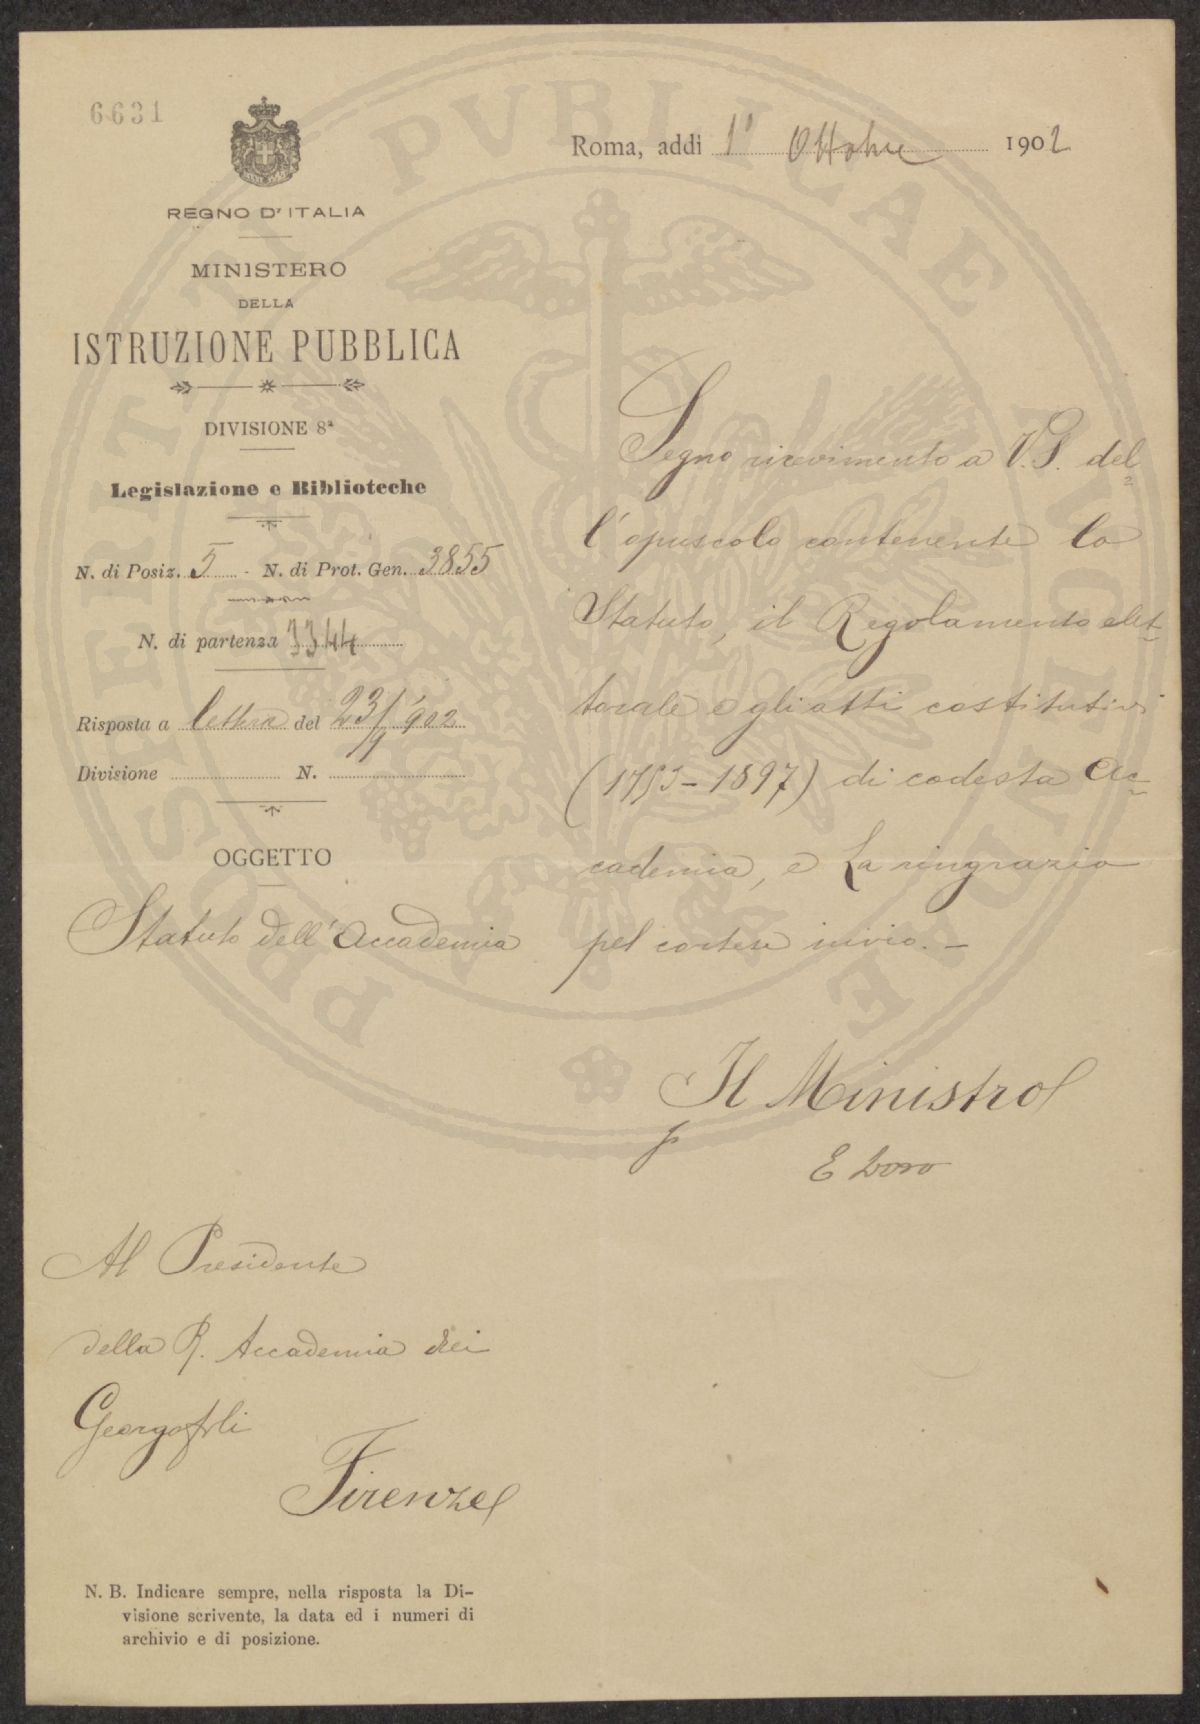 6631
REGNO D'ITALIA
MINISTERO
DELLA
ISTRUZIONE PUBBLICA
DIVISIONE 8ª
Legislazione e Biblioteche
N. di Posiz. 5 - N. di Prot. Gen. 3855
N. di partenza 3344
Risposta a lettera del 23/9 902
Divisione N.
OGGETTO
Statuto dell'Accademia
Roma, addì 1° Ottobre 1902
Segno ricevimento a V.S. del
l'opuscolo contenente lo
Statuto, il Regolamento elet-
torale e gli atti costitutivi
(1753-1897) di codesta Ac-
cademia, e La ringrazio
pel cortese invio. -
Il Ministro
Al Presidente
della R. Accademia dei
Georgofili
Firenze
N. B. Indicare sempre, nella risposta la Di-
visione scrivente, la data ed i numeri di
archivio e di posizione.
PROSPERITATI PVBLICAE AVGENDAE